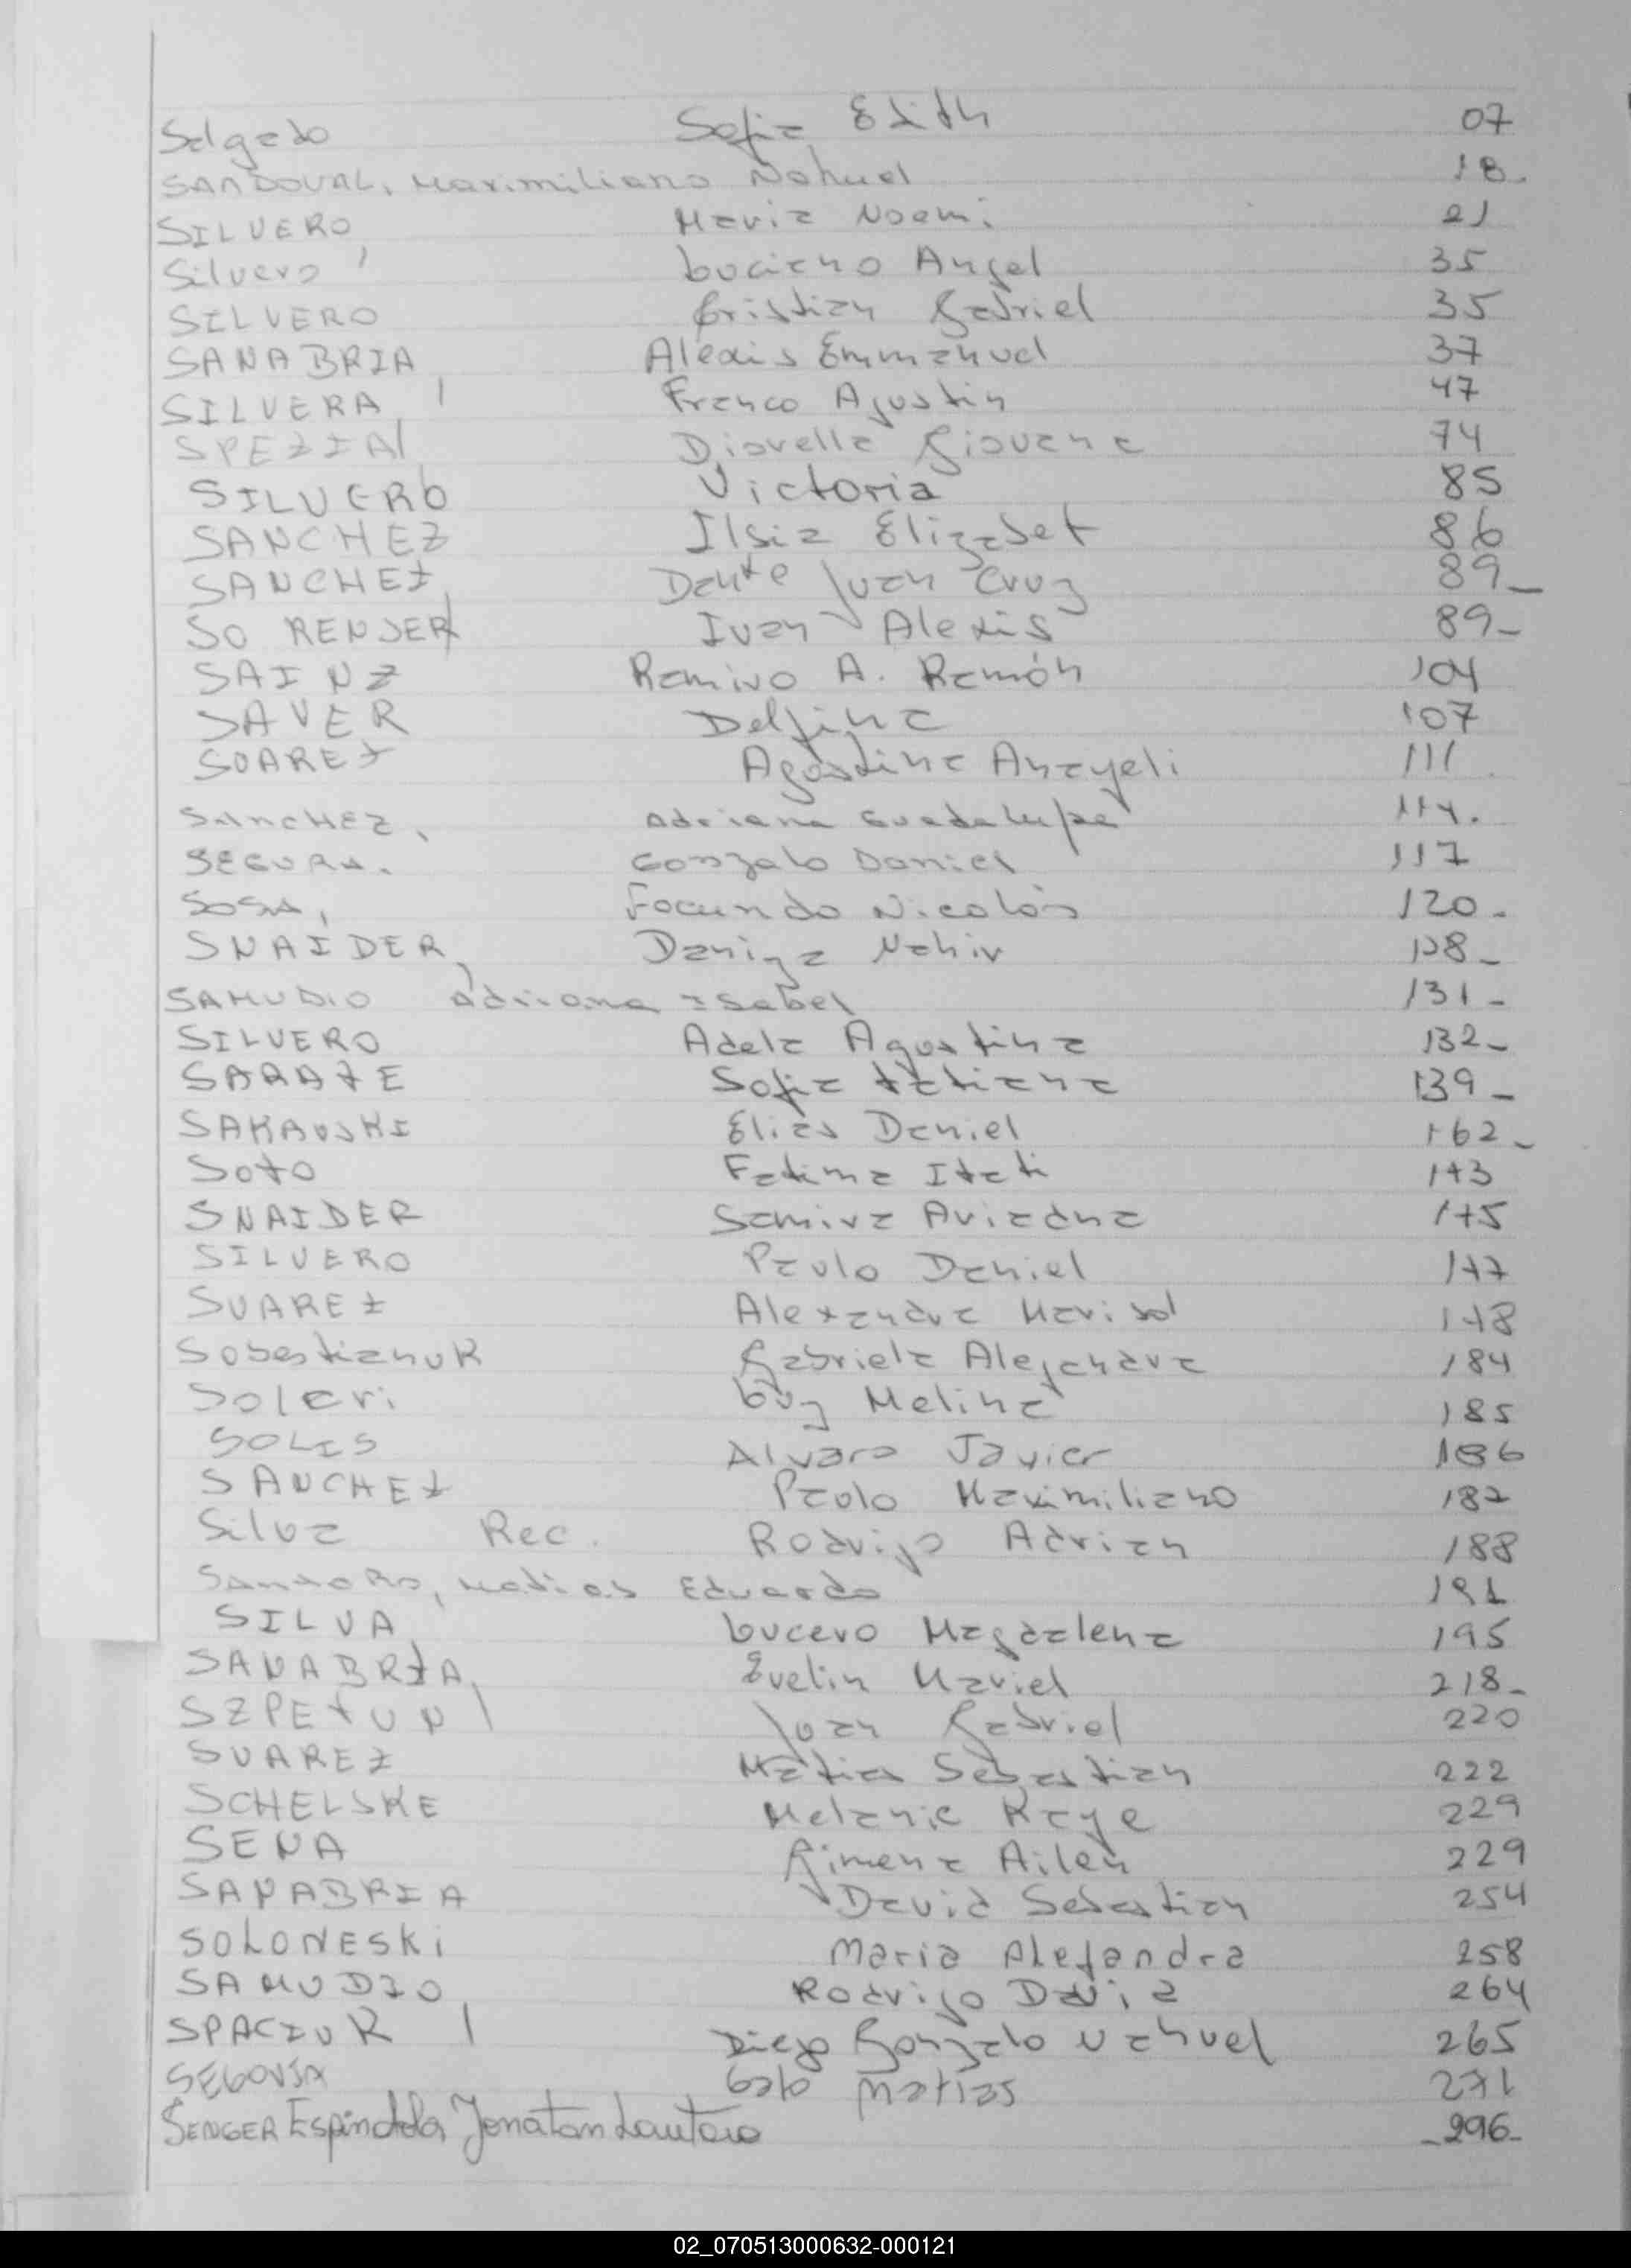 Salgado Sofia Edith 07
SANDOVAL, Maximiliano Nahuel 18.
SILVERO, Maria Noemi 21
Silvero, Luciano Angel 35
SILVERO Cristian Gabriel 35
SANABRIA, Alexis Emmanuel 37
SILVERA, Franco Agustin 47
SPEZIAL Giovana 74
SILVERO Victoria 85
SANCHEZ Ilsia Elizabet 86
SANCHEZ, Dante Juan Cruz 89_
SORENSER Ivan Alexis 89_
SAINZ Ramiro A. Ramón 104
SAVER Delfina 107
SUAREZ Agostina Anayeli 111
SANCHEZ, Adriana Guadalupe 114.
SEGURA. Gonzalo Daniel 117
SOSA, Facundo Nicolás 120_
SNAIDER, Nahir 128_
SAMUDIO Adriana Isabel 131_
SILVERO Adela Agostina 132_
SARATE Sofia Tatiana 139_
Elias Daniel 162_
Soto Fatima Itati 173
SNAIDER Samira Ariadna 175
SILVERO Paulo Daniel 177
SUAREZ Alexandra Marisol 178
SobestianuK Gabriela Alejandra 184
Soleri Luz Melina 185
SOLIS Alvaro Javier 186
SANCHEZ Paolo Maximiliano 187
Silva Rec. Rodrigo Adrian 188
SANTORO, Matias Eduardo 191
SILVA Lucero Magdalena 195
SANABRIA, Evelin Mariel 218_
SZPETUN Juan Gabriel 220
SUAREZ Matias Sebastian 222
SCHELSKE Melanie Kaye 229
SENA Gimena Ailen 229
SANABRIA David Sebastian 254
SOLONESKi Maria Alejandra 258
SAMUDIO, Rodrigo 264
SPACIUK Diego Gonzalo Nahuel 265
SEGOVIA Matias 271
SENGER Espindola, Jonatan Lautaro _296_
02_070513000632-000121